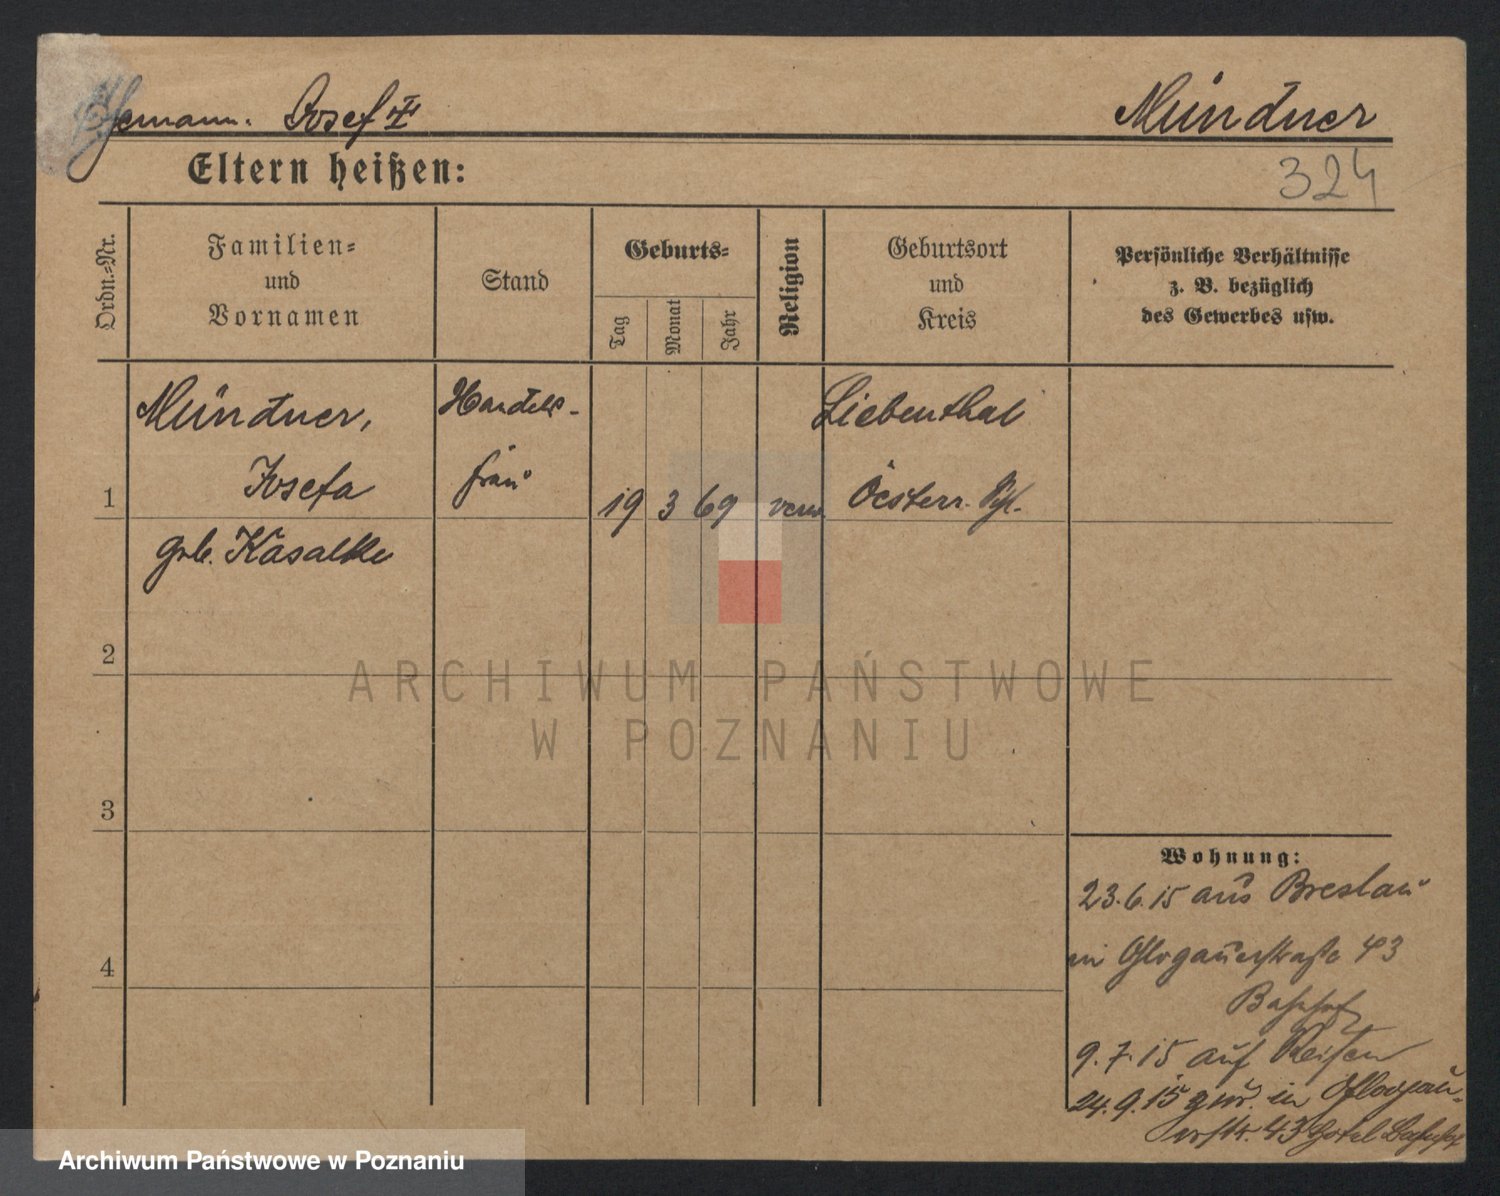 Ehemann: Josef I Mündner
Eltern heißen:
324
Ordn.=Nr.
Familien=
und
Vornamen
Stand
Geburts=
Tag
Monat
Jahr
Religion
Geburtsort
und
Kreis
Persönliche Verhältnisse
z. B. bezüglich
des Gewerbes usw.
1
Mündner,
Josefa
geb. Kasalke
Handels-
frau
19 3 69
Liebenthal
Oesterr. Schl.
2
3
4
Wohnung:
23.6.15 aus Breslau
in Glogauerstraße 43
Bahnhof
9.7.15 auf Reisen
24.9.15 zur. in Glogau-
erstr. 43 Hotel Bahnhof
ARCHIWUM PAŃSTWOWE
W POZNANIU
Archiwum Państwowe w Poznaniu